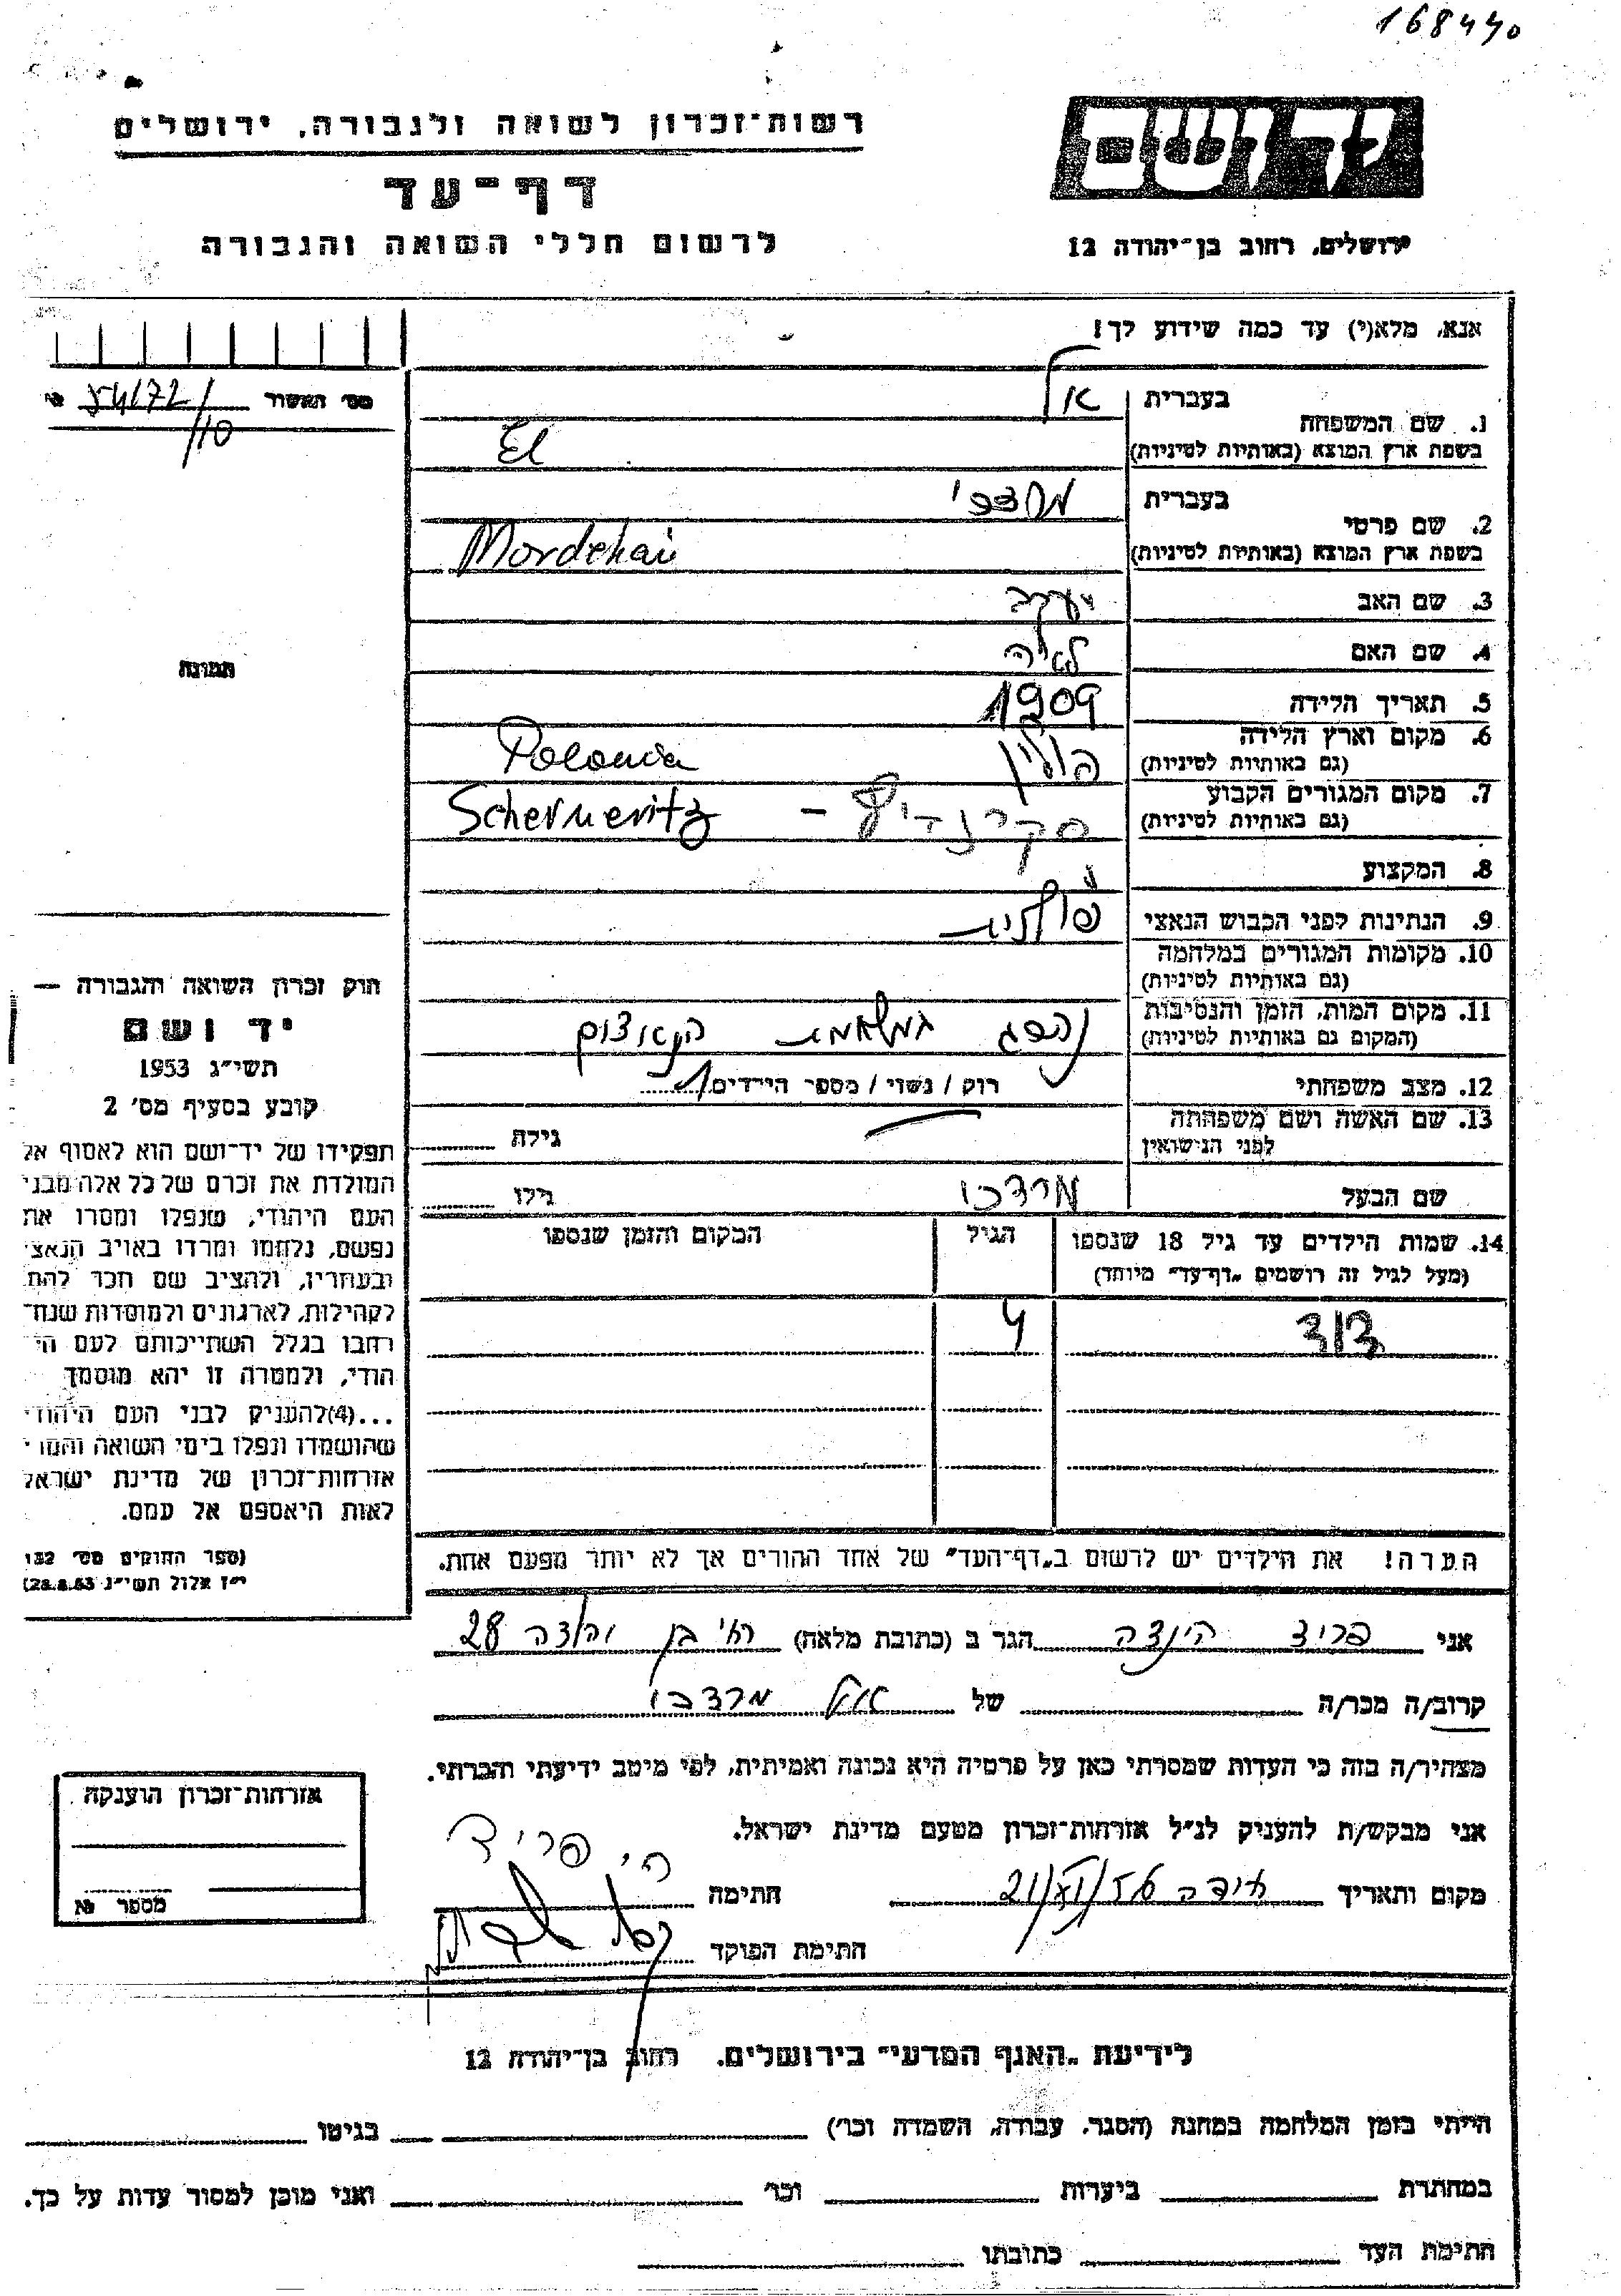 168440
רשות-זכרון לשואה ולגבורה, ירושלים
דף-עד
לרשום חללי השואה והגבורה
יד ושם
ירושלים, רחוב בן-יהודה 12
אנא, מלא(י) עד כמה שידוע לך!
מס' האשור
10
1. שם המשפחה
בעברית אל
בשפת ארץ המוצא (באותיות לטיניות) El
2. שם פרטי
בעברית
בשפת ארץ המוצא (באותיות לטיניות) Mordehai
3. שם האב יעקב
4. שם האם לאה
5. תאריך הלידה 1909
6. מקום וארץ הלידה פולין Polonia
(גם באותיות לטיניות)
7. מקום המגורים הקבוע - Scherneritz
(גם באותיות לטיניות)
8. המקצוע
9. הנתינות לפני הכבוש הנאצי פולנית
10. מקומות המגורים במלחמה
(גם באותיות לטיניות)
11. מקום המות, הזמן והנסיבות נהרג במלחמת
(המקום גם באותיות לטיניות)
12. מצב משפחתי רווק / נשוי / מספר הילדים 1
13. שם האשה ושם משפחתה
לפני הנישואין גילה
שם הבעל מרדכי גילו
14. שמות הילדים עד גיל 18 שנספו הגיל המקום והזמן שנספו
(מעל לגיל זה רושמים "דף-עד" מיוחד)
דוד 4
הערה! את הילדים יש לרשום ב"דף-העד" של אחד ההורים אך לא יותר מפעם אחת.
תמונה
חוק זכרון השואה והגבורה —
יד ושם
תשי"ג 1953
קובע בסעיף מס' 2
תפקידו של יד-ושם הוא לאסוף אל
המולדת את זכרם של כל אלה מבני
העם היהודי, שנפלו ומסרו את
נפשם, נלחמו ומרדו באויב הנאצי
ובעוזריו, ולהציב שם וזכר להם
לקהילות, לארגונים ולמוסדות שנח-
רבו בגלל השתייכותם לעם הי-
הודי, ולמטרה זו יהא מוסמך
...(4)להעניק לבני העם היהודי
שהושמדו ונפלו בימי השואה והמרי
אזרחות-זכרון של מדינת ישראל
לאות היאספם אל עמם.
(ספר החוקים מס' 132
י"ז אלול תשי"ג 28.8.53)
אני פריד הינדה הגר ב (כתובת מלאה) בן יהודה 28
קרוב/ה מכר/ה של אל מרדכי
מצהיר/ה בזה כי העדות שמסרתי כאן על פרטיה היא נכונה ואמיתית, לפי מיטב ידיעתי והכרתי.
אני מבקש/ת להעניק לנ"ל אזרחות-זכרון מטעם מדינת ישראל.
מקום ותאריך חתימה ה. פריד
חתימת הפוקד
אזרחות-זכרון הוענקה
מספר №
לידיעת "האגף המדעי" בירושלים. רחוב בן-יהודה 12
הייתי בזמן המלחמה במחנה (הסגר, עבודה, השמדה וכו') בגיטו
במחתרת ביערות וכו' ואני מוכן למסור עדות על כך.
חתימת העד כתובתו